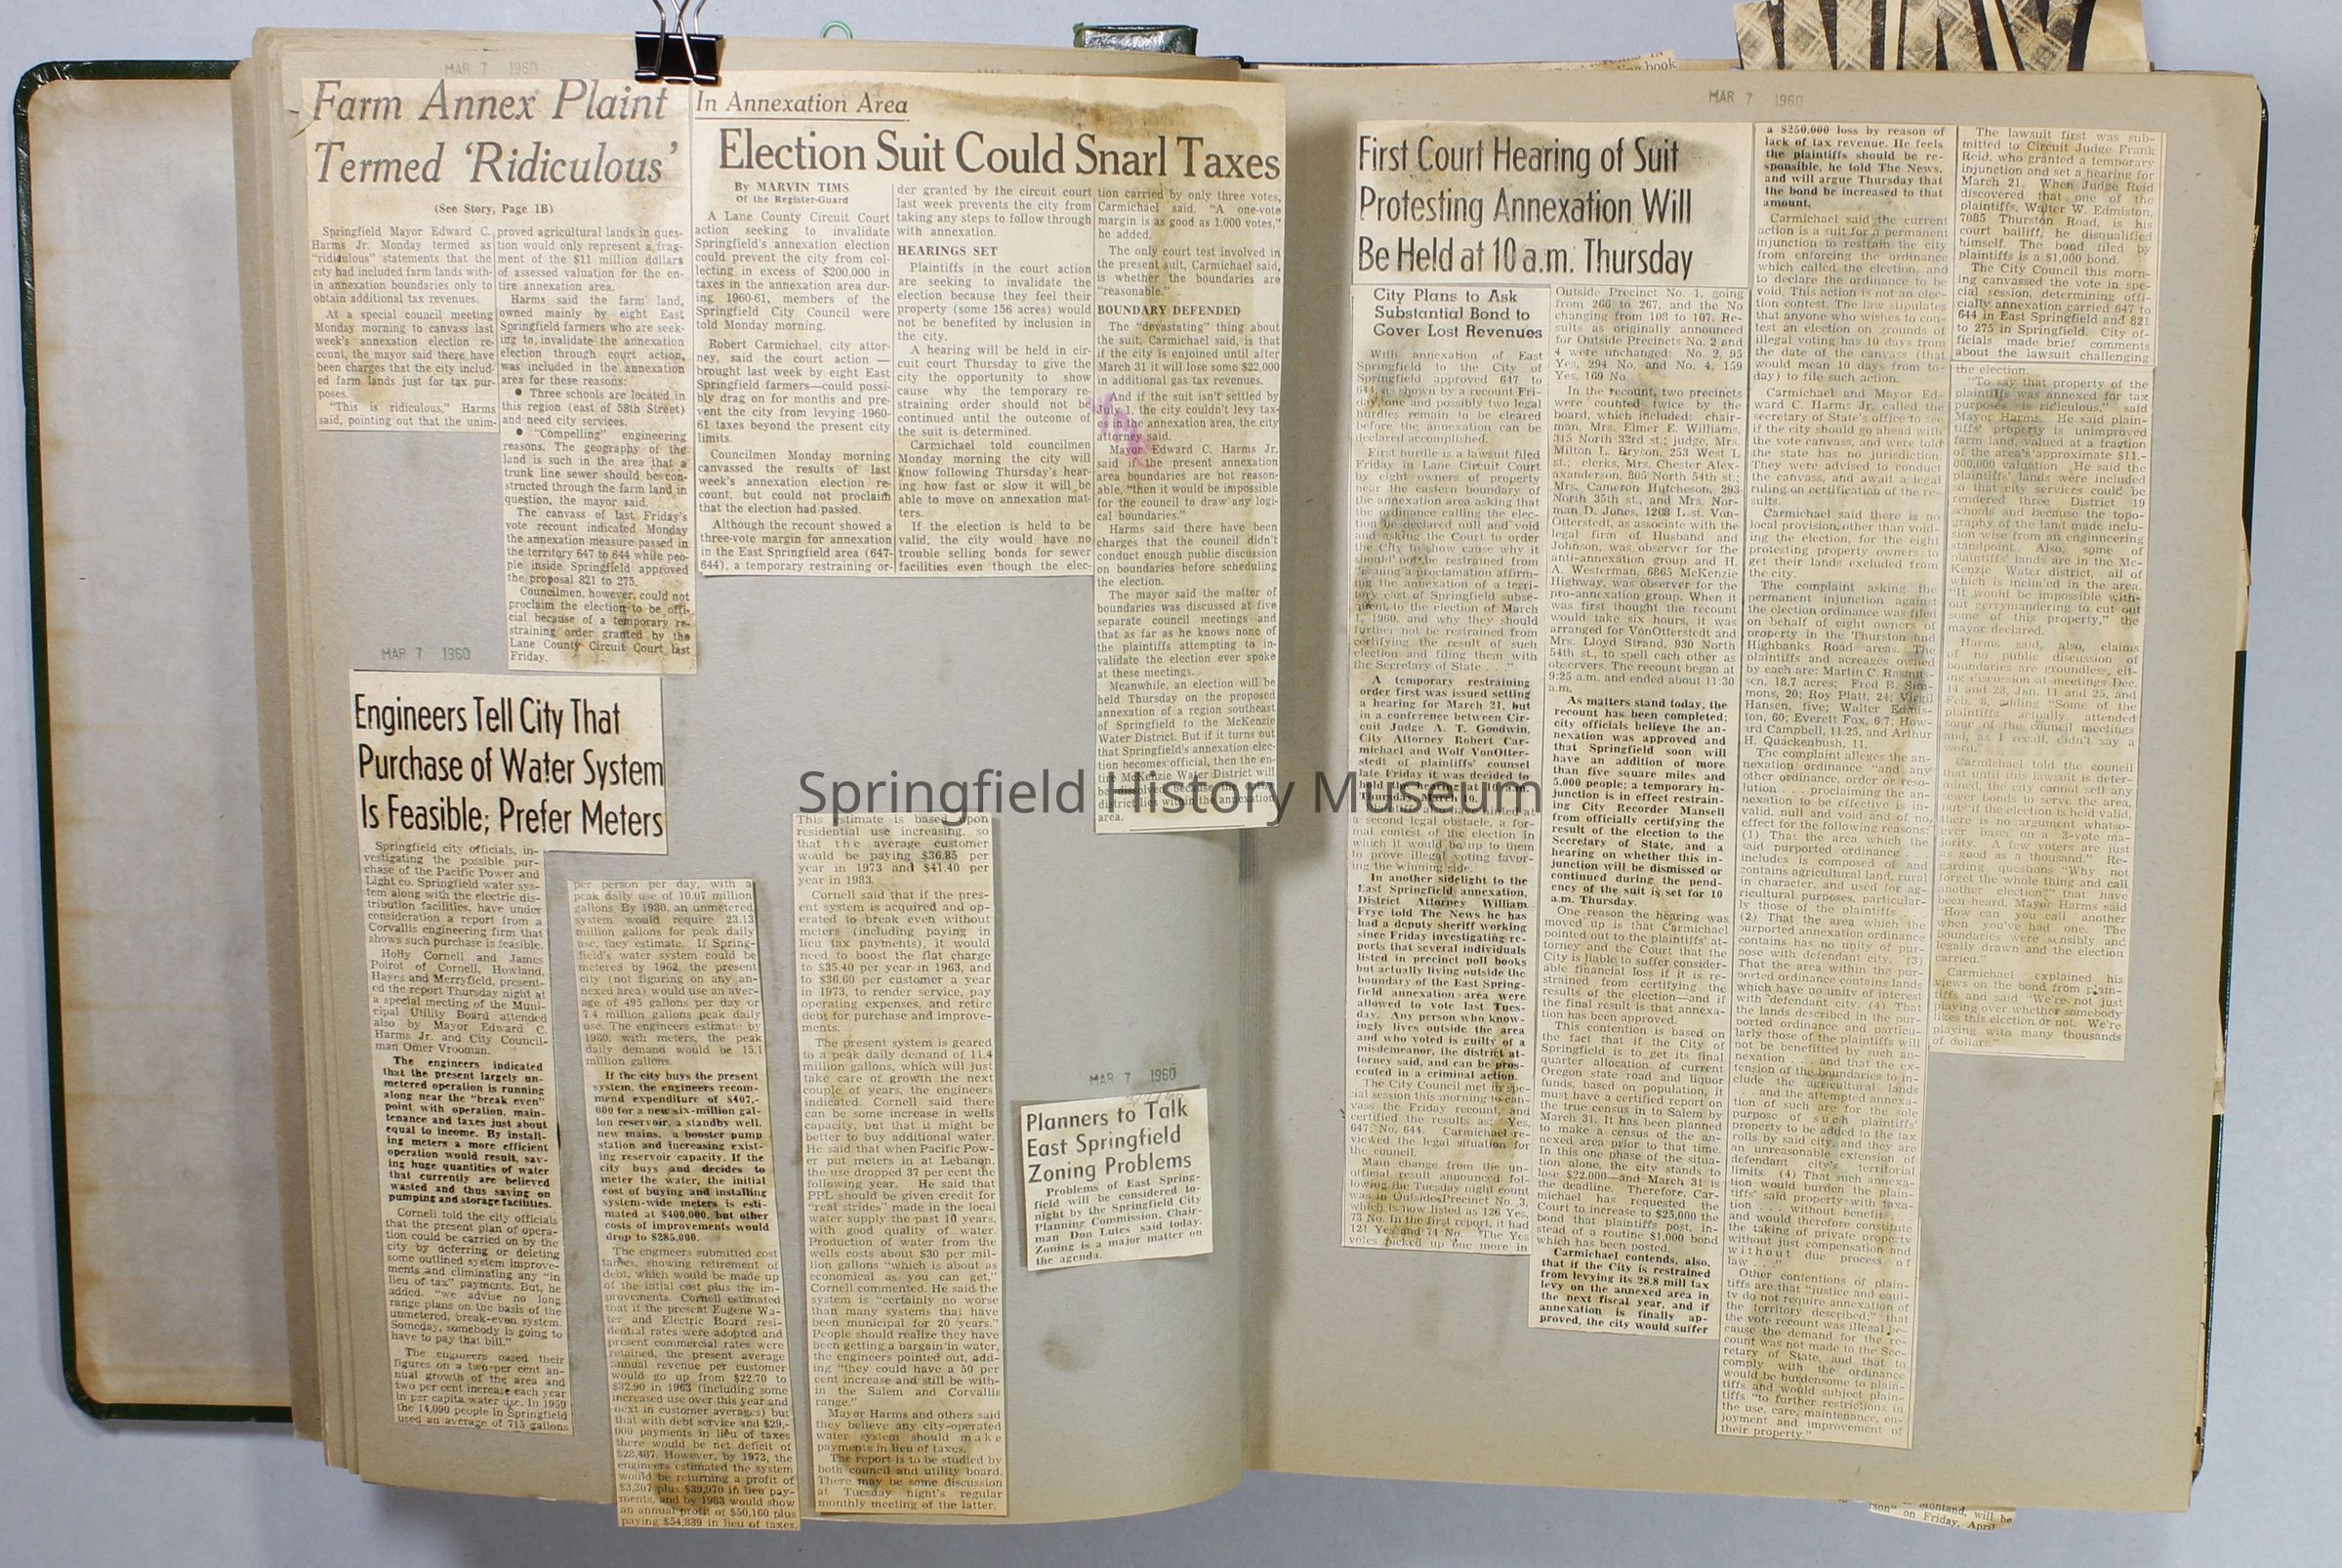 MAR 7 1960
Farm Annex Plaint
Termed 'Ridiculous'
(See Story, Page 1B)
Springfield Mayor Edward C.
Harms Jr. Monday termed as
"ridiculous" statements that the
city had included farm lands with-
in annexation boundaries only to
obtain additional tax revenues.
At a special council meeting
Monday morning to canvass last
week's annexation election re-
count, the mayor said there have
been charges that the city includ-
ed farm lands just for tax pur-
poses.
"This is ridiculous," Harms
said, pointing out that the unim-
proved agricultural lands in ques-
tion would only represent a frag-
ment of the $11 million dollars
of assessed valuation for the en-
tire annexation area.
Harms said the farm land,
owned mainly by eight East
Springfield farmers who are seek-
ing to invalidate the annexation
election through court action,
was included in the annexation
area for these reasons:
• Three schools are located in
this region (east of 58th Street)
and need city services.
• "Compelling" engineering
reasons. The geography of the
land is such in the area that a
trunk line sewer should be con-
structed through the farm land in
question, the mayor said.
The canvass of last Friday's
vote recount indicated Monday
the annexation measure passed in
the territory 647 to 644 while peo-
ple inside Springfield approved
the proposal 821 to 275.
Councilmen, however, could not
proclaim the election to be offi-
cial because of a temporary re-
straining order granted by the
Lane County Circuit Court last
Friday.
In Annexation Area
Election Suit Could Snarl Taxes
By MARVIN TIMS
Of the Register-Guard
A Lane County Circuit Court
action seeking to invalidate
Springfield's annexation election
could prevent the city from col-
lecting in excess of $200,000 in
taxes in the annexation area dur-
ing 1960-61, members of the
Springfield City Council were
told Monday morning.
Robert Carmichael, city attor-
ney, said the court action —
brought last week by eight East
Springfield farmers—could possi-
bly drag on for months and pre-
vent the city from levying 1960-
61 taxes beyond the present city
limits.
Councilmen Monday morning
canvassed the results of last
week's annexation election re-
count, but could not proclaim
that the election had passed.
Although the recount showed a
three-vote margin for annexation
in the East Springfield area (647-
644), a temporary restraining or-
der granted by the circuit court
last week prevents the city from
taking any steps to follow through
with annexation.
HEARINGS SET
Plaintiffs in the court action
are seeking to invalidate the
election because they feel their
property (some 156 acres) would
not be benefited by inclusion in
the city.
A hearing will be held in cir-
cuit court Thursday to give the
city the opportunity to show
cause why the temporary re-
straining order should not be
continued until the outcome of
the suit is determined.
Carmichael told councilmen
Monday morning the city will
know following Thursday's hear-
ing how fast or slow it will be
able to move on annexation mat-
ters.
If the election is held to be
valid, the city would have no
trouble selling bonds for sewer
facilities even though the elec-
tion carried by only three votes,
Carmichael said. "A one-vote
margin is as good as 1,000 votes,"
he added.
The only court test involved in
the present suit, Carmichael said,
is whether the boundaries are
"reasonable."
BOUNDARY DEFENDED
The "devastating" thing about
the suit, Carmichael said, is that
if the city is enjoined until after
March 31 it will lose some $22,000
in additional gas tax revenues.
And if the suit isn't settled by
July 1, the city couldn't levy tax-
es in the annexation area, the city
attorney said.
Mayor Edward C. Harms Jr.
said if the present annexation
area boundaries are not reason-
able, "then it would be impossible
for the council to draw any logi-
cal boundaries."
Harms said there have been
charges that the council didn't
conduct enough public discussion
on boundaries before scheduling
the election.
The mayor said the matter of
boundaries was discussed at five
separate council meetings and
that as far as he knows none of
the plaintiffs attempting to in-
validate the election ever spoke
at these meetings.
Meanwhile, an election will be
held Thursday on the proposed
annexation of a region southeast
of Springfield to the McKenzie
Water District. But if it turns out
that Springfield's annexation elec-
tion becomes official, then the en-
tire McKenzie Water District will
be dissolved
district lies within the annexation
area.
MAR 7 1960
Engineers Tell City That
Purchase of Water System
Is Feasible; Prefer Meters
Springfield city officials, in-
vestigating the possible pur-
chase of the Pacific Power and
Light co. Springfield water sys-
tem along with the electric dis-
tribution facilities, have under
consideration a report from a
Corvallis engineering firm that
shows such purchase is feasible.
Holly Cornell and James
Poirot of Cornell, Howland,
Hayes and Merryfield, present-
ed the report Thursday night at
a special meeting of the Muni-
cipal Utility Board attended
also by Mayor Edward C.
Harms Jr. and City Council-
man Omer Vrooman.
The engineers indicated
that the present largely un-
metered operation is running
along near the "break even"
point with operation, main-
tenance and taxes just about
equal to income. By install-
ing meters a more efficient
operation would result, sav-
ing huge quantities of water
that currently are believed
wasted and thus saving on
pumping and storage facilities.
Cornell told the city officials
that the present plan of opera-
tion could be carried on by the
city by deferring or deleting
some outlined system improve-
ments and eliminating any "in
lieu of tax" payments. But, he
added. "we advise no long
range plans on the basis of the
unmetered, break-even system.
Someday, somebody is going to
have to pay that bill."
The engineers based their
figures on a two-per cent an-
nual growth of the area and
two per cent increase each year
in per capita water use. In 1959
the 14,090 people in Springfield
used an average of 715 gallons
per person per day, with a
peak daily use of 10.07 million
gallons. By 1980, an unmetered
system would require 23.13
million gallons for peak daily
use, they estimate. If Spring-
field's water system could be
metered by 1962, the present
city (not figuring on any an-
nexed area) would use an aver-
age of 495 gallons per day or
7.4 million gallons peak daily
use. The engineers estimate by
1980, with meters, the peak
daily demand would be 15.1
million gallons.
If the city buys the present
system, the engineers recom-
mend expenditure of $407,-
000 for a new six-million gal-
lon reservoir, a standby well,
new mains, a booster pump
station and increasing exist-
ing reservoir capacity. If the
city buys and decides to
meter the water, the initial
cost of buying and installing
system-wide meters is esti-
mated at $400,000, but other
costs of improvements would
drop to $285,000.
The engineers submitted cost
tables, showing retirement of
debt, which would be made up
of the intial cost plus the im-
provements. Cornell estimated
that if the present Eugene Wa-
ter and Electric Board resi-
dential rates were adopted and
present commercial rates were
retained, the present average
annual revenue per customer
would go up from $22.70 to
$32.90 in 1963 (including some
increased use over this year and
next in customer averages) but
that with debt service and $29,-
000 payments in lieu of taxes
there would be net deficit of
$28,487. However, by 1973, the
engineers estimated the system
would be returning a profit of
$3,307 plus $39,970 in lieu pay-
ments, and by 1983 would show
an annual profit of $50,160 plus
paying $54,839 in lieu of taxes.
This estimate is based upon
residential use increasing, so
that the average customer
would be paying $36.85 per
year in 1973 and $41.40 per
year in 1983.
Cornell said that if the pres-
ent system is acquired and op-
erated to break even without
meters (including paying in
lieu tax payments), it would
need to boost the flat charge
to $35.40 per year in 1963, and
to $36.60 per customer a year
in 1973, to render service, pay
operating expenses, and retire
debt for purchase and improve-
ments.
The present system is geared
to a peak daily demand of 11.4
million gallons, which will just
take care of growth the next
couple of years, the engineers
indicated. Cornell said there
can be some increase in wells
capacity, but that it might be
better to buy additional water.
He said that when Pacific Pow-
er put meters in at Lebanon,
the use dropped 37 per cent the
following year. He said that
PPL should be given credit for
"real strides" made in the local
water supply the past 10 years,
with good quality of water.
Production of water from the
wells costs about $30 per mil-
lion gallons "which is about as
economical as you can get,"
Cornell commented. He said the
system is "certainly no worse
than many systems that have
been municipal for 20 years."
People should realize they have
been getting a bargain in water,
the engineers pointed out, add-
ing "they could have a 50 per
cent increase and still be with-
in the Salem and Corvallis
range."
Mayor Harms and others said
they believe any city-operated
water system should make
payments in lieu of taxes.
The report is to be studied by
both council and utility board.
There may be some discussion
at Tuesday night's regular
monthly meeting of the latter.
MAR 7 1960
Planners to Talk
East Springfield
Zoning Problems
Problems of East Spring-
field will be considered to-
night by the Springfield City
Planning Commission, Chair-
man Don Lutes said today.
Zoning is a major matter on
the agenda.
Springfield History Museum
MAR 7 1960
First Court Hearing of Suit
Protesting Annexation Will
Be Held at 10 a.m. Thursday
City Plans to Ask
Substantial Bond to
Cover Lost Revenues
With annexation of East
Springfield to the City of
Springfield approved 647 to
644, as shown by a recount Fri-
day, one and possibly two legal
hurdles remain to be cleared
before the annexation can be
declared accomplished.
First hurdle is a lawsuit filed
Friday in Lane Circuit Court
by eight owners of property
near the eastern boundary of
the annexation area asking that
the ordinance calling the elec-
tion be declared null and void
and asking the Court to order
the City to show cause why it
should not be restrained from
"issuing a proclamation affirm-
ing the annexation of a terri-
tory east of Springfield subse-
quent to the election of March
1, 1960, and why they should
further not be restrained from
certifying the result of such
election and filing them with
the Secretary of State . . ."
A temporary restraining
order first was issued setting
a hearing for March 21, but
in a conference between Cir-
cuit Judge A. T. Goodwin,
City Attorney Robert Car-
michael and Wolf VonOtter-
stedt of plaintiffs' counsel
late Friday it was decided to
a second legal obstacle, a for-
mal contest of the election in
which it would be up to them
to prove illegal voting favor-
ing the winning side.
In another sidelight to the
East Springfield annexation,
District Attorney William
Frye told The News he has
had a deputy sheriff working
since Friday investigating re-
ports that several individuals
listed in precinct poll books
but actually living outside the
boundary of the East Spring-
field annexation area were
allowed to vote last Tues-
day. Any person who know-
ingly lives outside the area
and who voted is guilty of a
misdemeanor, the district at-
torney said, and can be pros-
ecuted in a criminal action.
The City Council met in spe-
cial session this morning to can-
vass the Friday recount, and
certified the results as: Yes,
647; No, 644. Carmichael re-
viewed the legal situation for
the council.
Main change from the un-
official result announced fol-
lowing the Tuesday night count
was in Outside Precinct No. 3,
which is now listed as 126 Yes,
73 No. In the first report, it had
121 Yes and 74 No. The Yes
votes picked up one more in
Outside Precinct No. 1, going
from 266 to 267, and the No
changing from 108 to 107. Re-
sults as originally announced
for Outside Precincts No. 2 and
4 were unchanged: No. 2, 95
Yes, 294 No, and No. 4, 159
Yes, 169 No.
In the recount, two precincts
were counted twice by the
board, which included: chair-
man, Mrs. Elmer E. Williams,
315 North 33rd st.; judge, Mrs.
Milton L. Bryson, 253 West L
st.; clerks, Mrs. Chester Alex-
axanderson, 805 North 54th st.;
Mrs. Cameron Hutcheson, 293
North 35th st., and Mrs. Nor-
man D. Jones, 1203 L st. Von-
Otterstedt, as associate with the
legal firm of Husband and
Johnson, was observer for the
anti-annexation group and H.
A. Westerman, 6865 McKenzie
Highway, was observer for the
pro-annexation group. When it
was first thought the recount
would take six hours, it was
arranged for VonOtterstedt and
Mrs. Lloyd Strand, 930 North
54th st., to spell each other as
observers. The recount began at
9:25 a.m. and ended about 11:30
a.m.
As matters stand today, the
recount has been completed;
city officials believe the an-
nexation was approved and
that Springfield soon will
have an addition of more
than five square miles and
5,000 people; a temporary in-
junction is in effect restrain-
ing City Recorder Mansell
from officially certifying the
result of the election to the
Secretary of State, and a
hearing on whether this in-
junction will be dismissed or
continued during the pend-
ency of the suit is set for 10
a.m. Thursday.
One reason the hearing was
moved up is that Carmichael
pointed out to the plaintiffs' at-
torney and the Court that the
City is liable to suffer consider-
able financial loss if it is re-
strained from certifying the
results of the election—and if
the final result is that annexa-
tion has been approved.
This contention is based on
the fact that if the City of
Springfield is to get its final
quarter allocation of current
Oregon state road and liquor
funds, based on population, it
must have a certified report on
the true census in to Salem by
March 31. It has been planned
to make a census of the an-
nexed area prior to that time.
In this one phase of the situa-
tion alone, the city stands to
lose $22,000—and March 31 is
the deadline. Therefore, Car-
michael has requested the
Court to increase to $25,000 the
bond that plaintiffs post, in-
stead of a routine $1,000 bond
which has been posted.
Carmichael contends, also,
that if the City is restrained
from levying its 28.8 mill tax
levy on the annexed area in
the next fiscal year, and if
annexation is finally ap-
proved, the city would suffer
a $250,000 loss by reason of
lack of tax revenue. He feels
the plaintiffs should be re-
sponsible, he told The News,
and will argue Thursday that
the bond be increased to that
amount.
Carmichael said the current
action is a suit for a permanent
injunction to restrain the city
from enforcing the ordinance
which called the election, and
to declare the ordinance to be
void. This action is not an elec-
tion contest. The law stipulates
that anyone who wishes to con-
test an election on grounds of
illegal voting has 10 days from
the date of the canvass (that
would mean 10 days from to-
day) to file such action.
Carmichael and Mayor Ed-
ward C. Harms Jr. called the
secretary of State's office to see
if the city should go ahead with
the vote canvass, and were told
the state has no jurisdiction.
They were advised to conduct
the canvass, and await a legal
ruling on certification of the re-
sults.
Carmichael said there is no
local provision, other than void-
ing the election, for the eight
protesting property owners to
get their lands excluded from
the city.
The complaint asking the
permanent injunction against
the election ordinance was filed
on behalf of eight owners of
property in the Thurston and
Highbanks Road areas. The
plaintiffs and acreages owned
by each are: Martin C. Rasmus-
sen, 18.7 acres; Fred B. Sim-
mons, 20; Roy Platt, 24; Virgil
Hansen, five; Walter Edmis-
ton, 60; Everett Fox, 6.7; How-
ard Campbell, 11.25, and Arthur
H. Quackenbush, 11.
The complaint alleges the an-
nexation ordinance "and any
other ordinance, order or reso-
lution . . . proclaiming the an-
nexation to be effective is in-
valid, null and void and of no
effect for the following reasons:
(1) That the area which the
said purported ordinance . . .
includes is composed of and
contains agricultural land, rural
in character, and used for ag-
ricultural purposes, particular-
ly those of the plaintiffs . . .
(2) That the area which the
purported annexation ordinance
contains has no unity of pur-
pose with defendant city. (3)
That the area within the pur-
ported ordinance contains lands
which have no unity of interest
with defendant city. (4) That
the lands described in the pur-
ported ordinance and particu-
larly those of the plaintiffs will
not be benefitted by such an-
nexation . . . and that the ex-
tension of the boundaries to in-
clude the agricultural lands
. . . and the attempted annexa-
tion of such are for the sole
purpose of such plaintiffs'
property to be added to the tax
rolls by said city, and they are
an unreasonable extension of
defendant city's territorial
limits. (4) That such annexa-
tion would burden the plain-
tiffs' said property with taxa-
tion . . . without benefit . . .
and would therefore constitute
the taking of private property
without just compensation and
without due process of
law . . ."
Other contentions of plain-
tiffs are that "justice and equi-
ty do not require annexation of
the territory described;" that
the vote recount was illegal be-
cause the demand for the re-
count was not made to the Sec-
retary of State, and that to
comply with the ordinance
would be burdensome to plain-
tiffs and would subject plain-
tiffs "to further restrictions in
the use, care, maintenance, en-
joyment and improvement of
their property."
The lawsuit first was sub-
mitted to Circuit Judge Frank
Reid, who granted a temporary
injunction and set a hearing for
March 21. When Judge Reid
discovered that one of the
plaintiffs, Walter W. Edmiston,
7085 Thurston Road, is his
court bailiff, he disqualified
himself. The bond filed by
plaintiffs is a $1,000 bond.
The City Council this morn-
ing canvassed the vote in spe-
cial session, determining offi-
cially annexation carried 647 to
644 in East Springfield and 821
to 275 in Springfield. City of-
ficials made brief comments
about the lawsuit challenging
the election.
"To say that property of the
plaintiffs was annexed for tax
purposes is ridiculous," said
Mayor Harms. He said plain-
tiffs' property is unimproved
farm land, valued at a fraction
of the area's approximate $11,-
000,000 valuation. He said the
plaintiffs' lands were included
so that city services could be
rendered three District 19
schools and because the topo-
graphy of the land made inclu-
sion wise from an enginneering
standpoint. Also, some of
plaintiffs' lands are in the Mc-
Kenzie Water district, all of
which is included in the area.
"It would be impossible with-
out gerrymandering to cut out
some of this property," the
mayor declared.
Harms said, also, claims
of no public discussion of
boundaries are groundless, cit-
ing discussion at meetings Dec.
14 and 28, Jan. 11 and 25, and
Feb. 8, adding "Some of the
plaintiffs actually attended
some of the council meetings
and, as I recall, didn't say a
word."
Carmichael told the council
that until this lawsuit is deter-
mined, the city cannot sell any
sewer bonds to serve the area,
but "if the election is held valid,
there is no argument whatso-
ever based on a 3-vote ma-
jority. A few voters are just
as good as a thousand." Re-
garding questions "Why not
forget the whole thing and call
another election?" that have
been heard, Mayor Harms said
"How can you call another
when you've had one. The
boundaries were sensibly and
legally drawn and the election
carried."
Carmichael explained his
views on the bond from plain-
tiffs and said "We're not just
playing over whether somebody
likes this election or not. We're
playing with many thousands
of dollars."